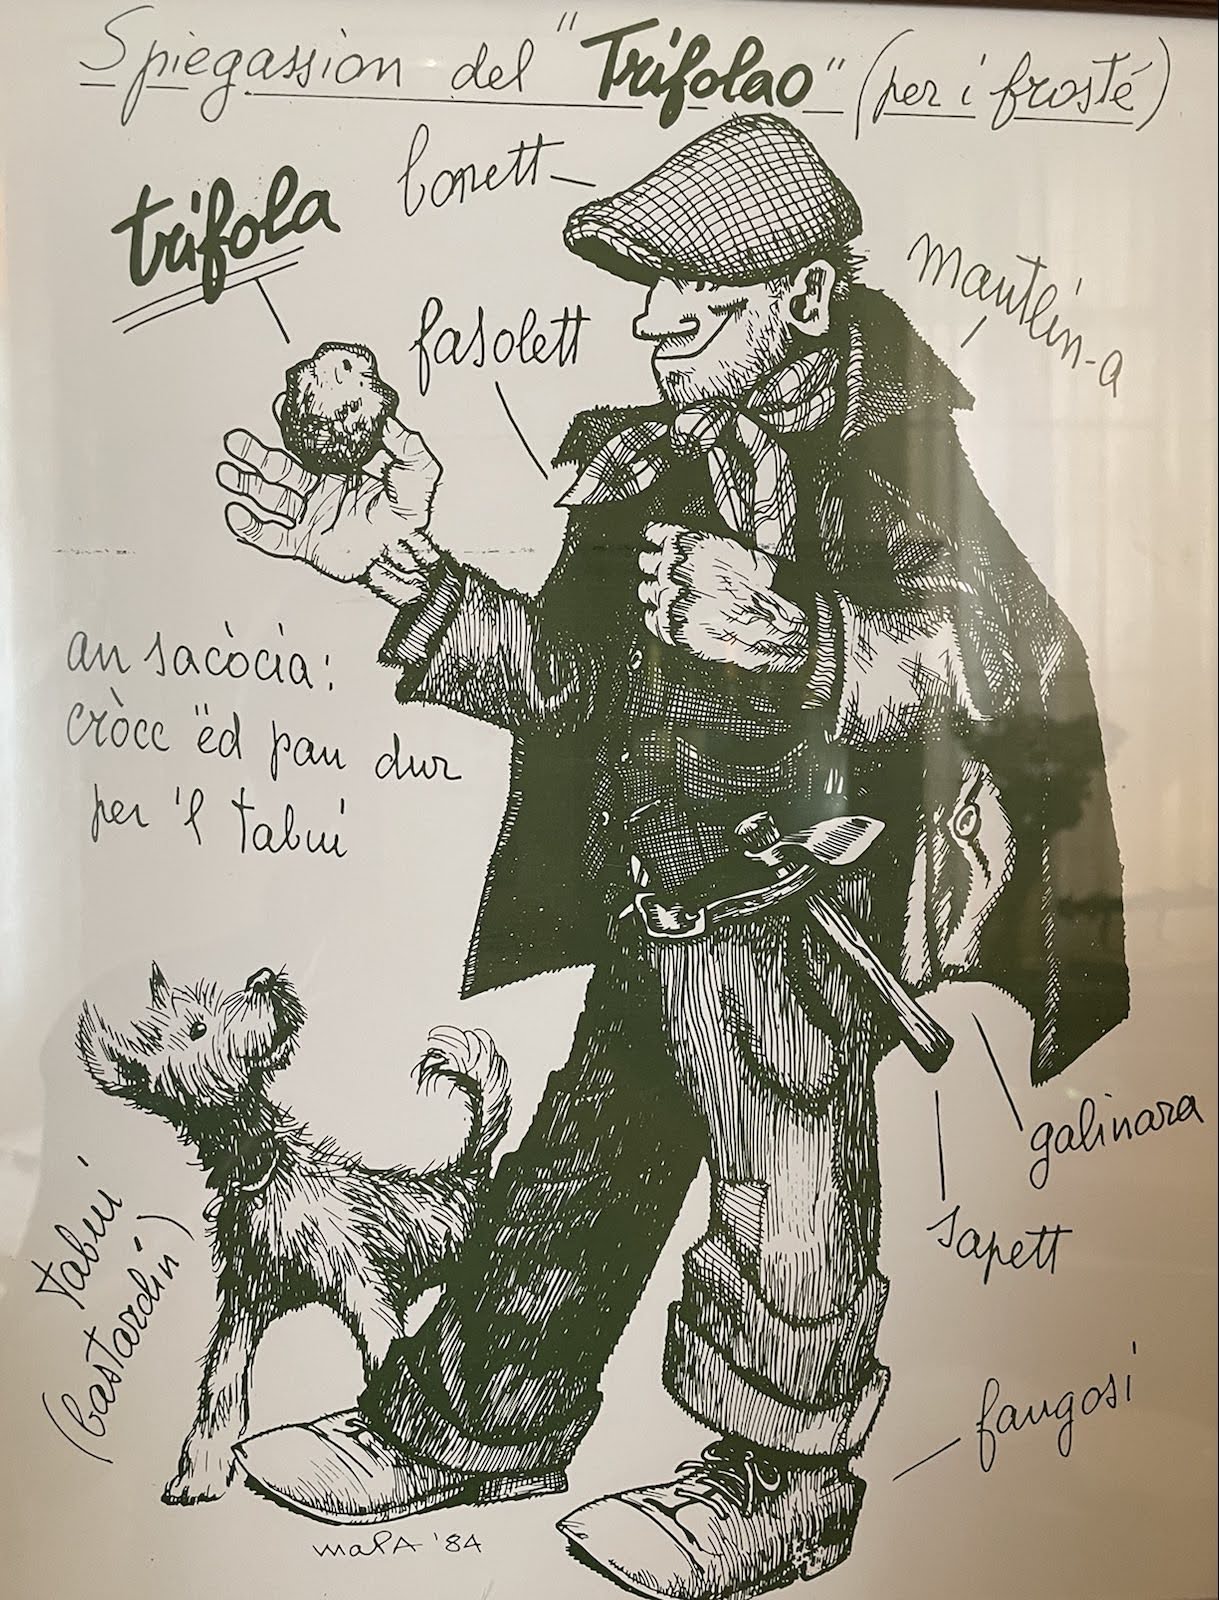 Spiegassion del "Trifolao" (per i frosté)
bonett
trifola
mantlin-a
fasolett
an sacòcia:
cròcc "ëd pan dur
per 'l tabui
galinara
sapett
tabui
(bastardin)
fangosi
maPA '84